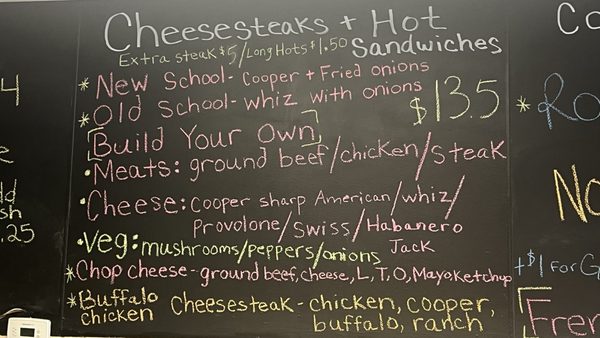 Cheesesteaks + Hot
Sandwiches
Extra steak $5/Long Hots $1.50
* New School - Cooper + Fried onions
* Old School - whiz with onions
$13.5
[Build Your Own]
• Meats: ground beef/chicken/steak
• Cheese: cooper sharp American/whiz/
Provolone/swiss/Habanero
Jack
• Veg: mushrooms/peppers/onions
* Chop cheese - ground beef, cheese, L, T, O, Mayoketchup
* Buffalo chicken Cheesesteak - chicken, cooper,
buffalo, ranch
4
.25
+$1 FOR G